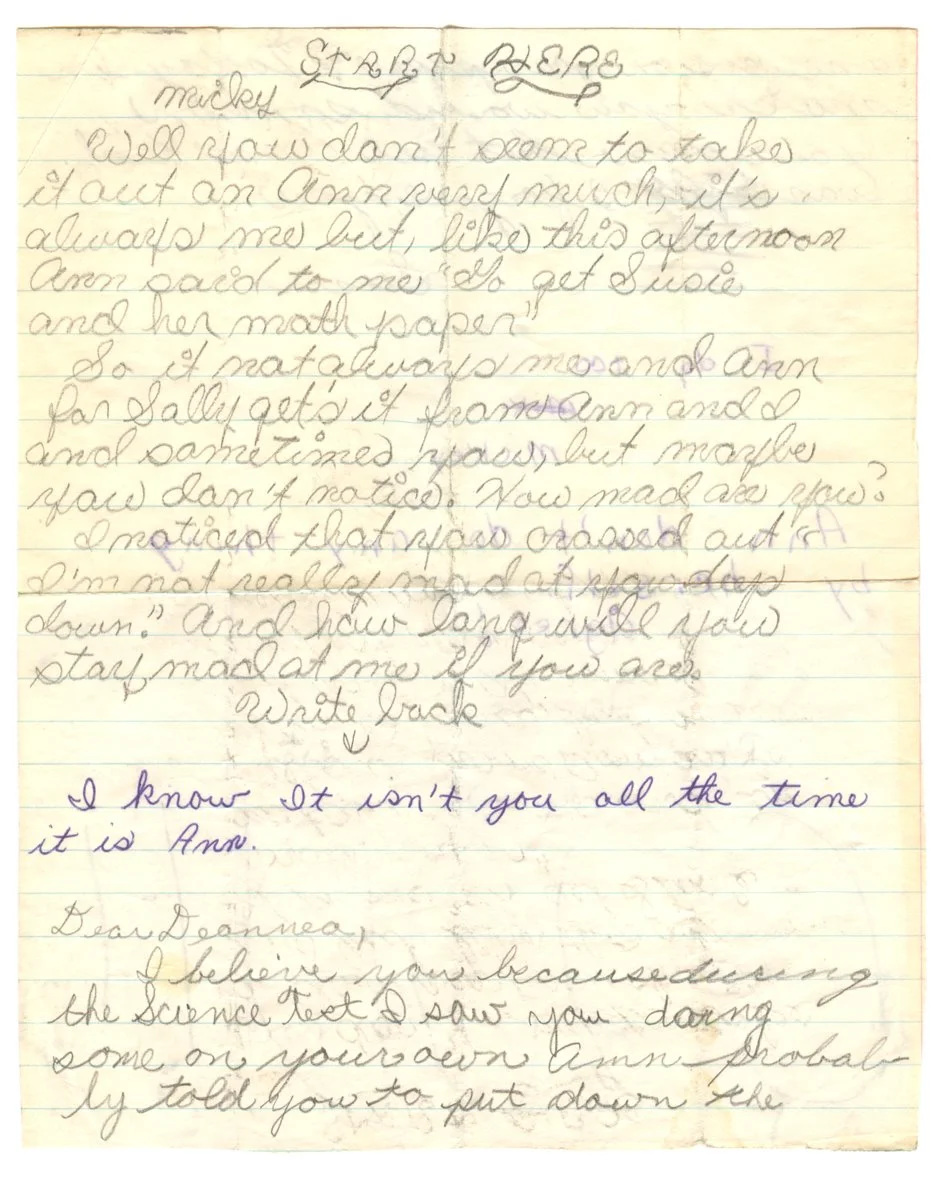 START HERE
Micky
Well you don't seem to take
it out on Ann very much, it's
always me but, like this afternoon
Ann said to me "Go get Susie
and her math paper"
So it not always me and Ann
for Sally gets it from Ann and I
and sometimes you, but maybe
you don't notice. How mad are you?
I noticed that you crossed out "
I'm not really mad at you deep
down." And how long will you
stay mad at me if you are.
Write back
↓
I know It isn't you all the time
it is Ann.
Dear Deannea,
I believe you because during
the Science Test I saw you doing
some on your own Ann probab-
ly told you to put down the